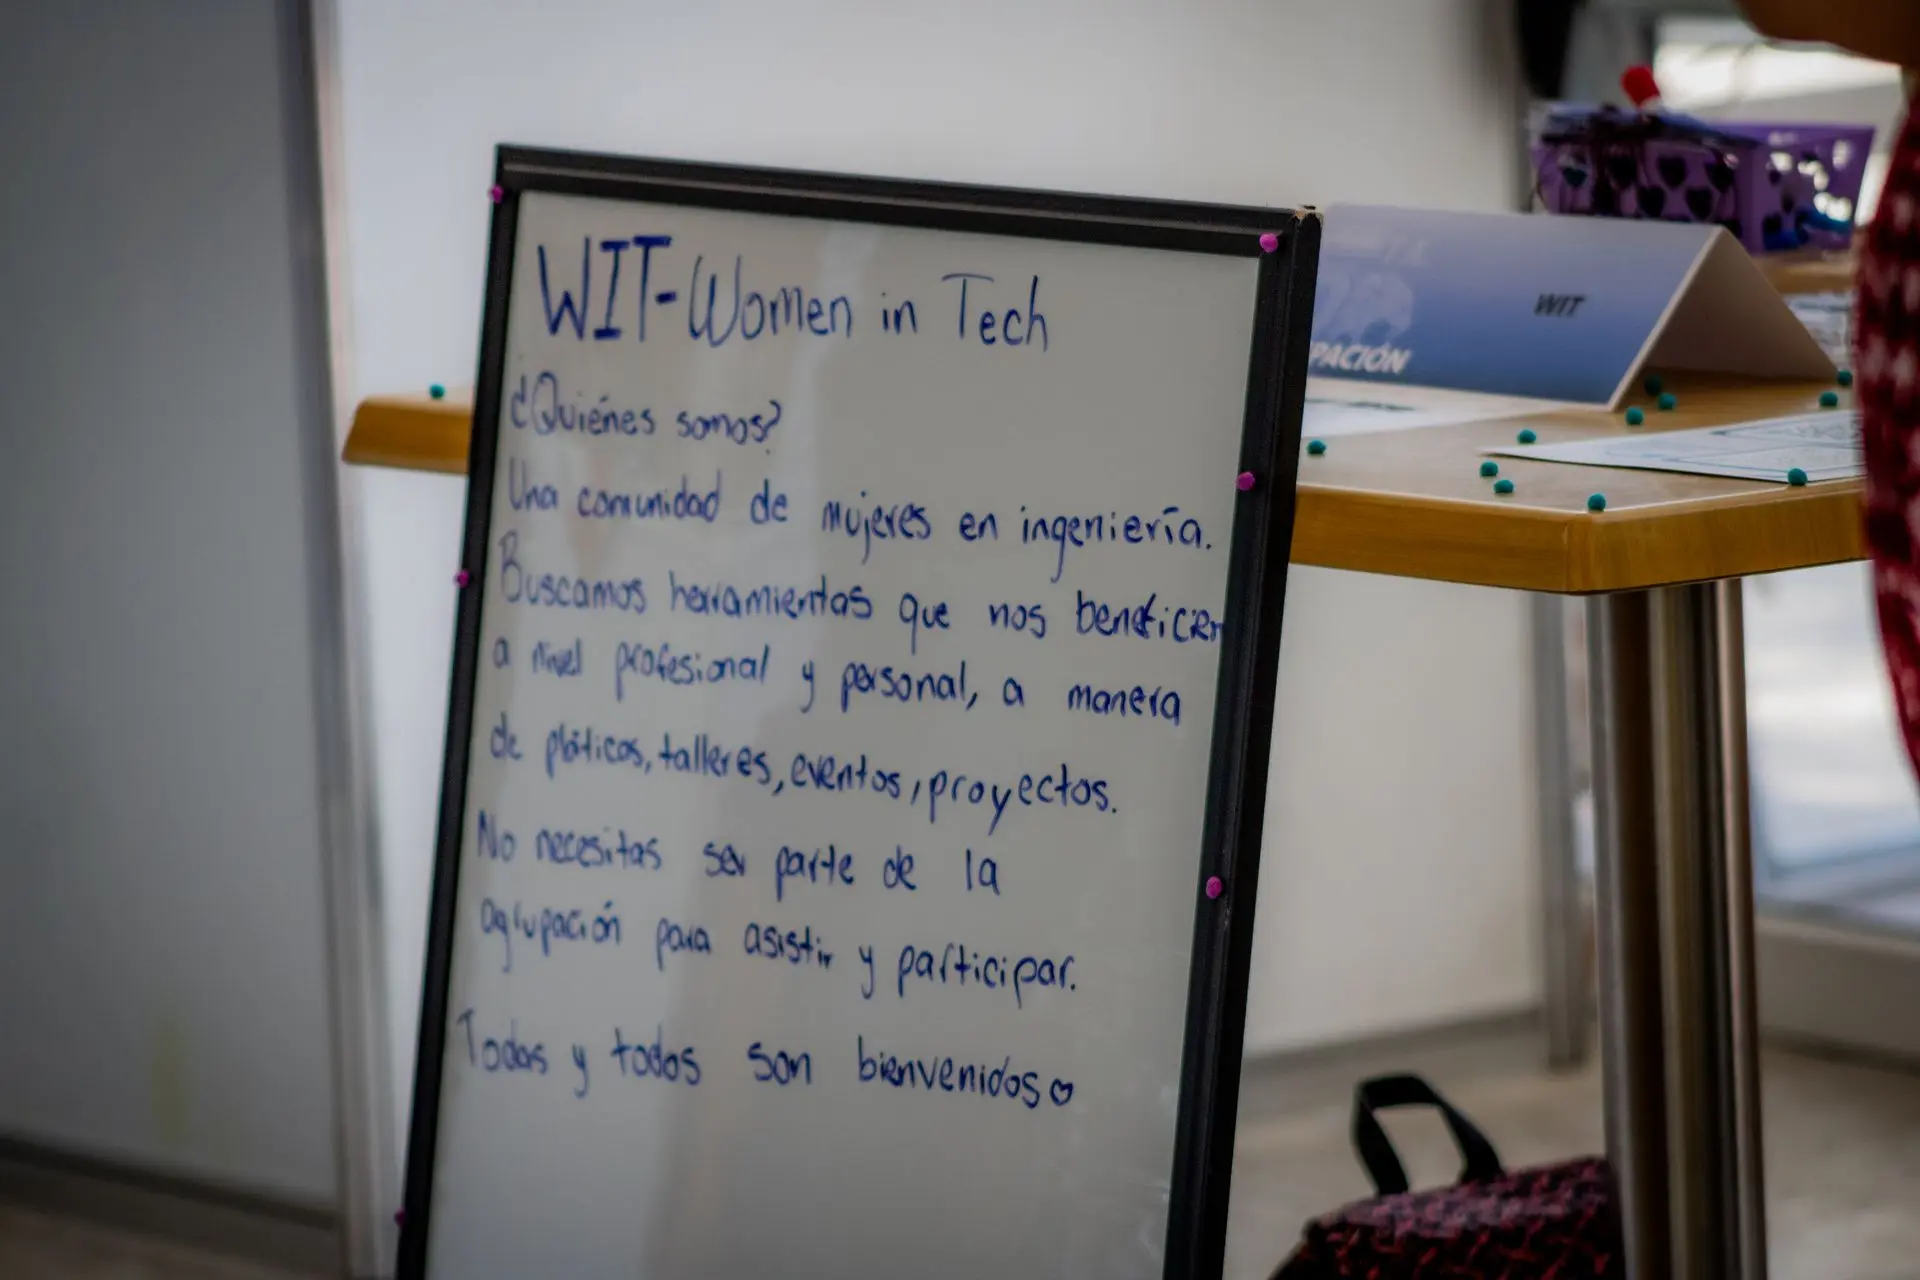 WIT-Women in Tech
¿Quiénes somos?
Una comunidad de mujeres en ingeniería.
Buscamos herramientas que nos beneficien
a nivel profesional y personal, a manera
de pláticas, talleres, eventos, proyectos.
No necesitas ser parte de la
agrupación para asistir y participar.
Todas y todos son bienvenidos♡
WIT
PACIÓN